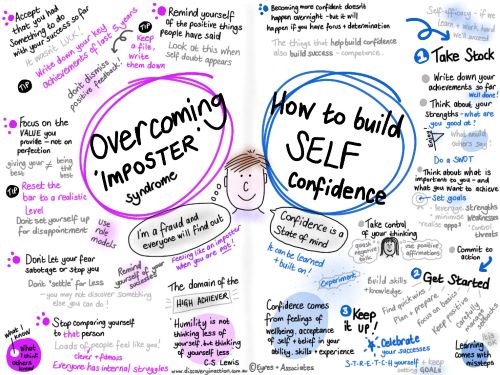 Accept
that you had
Something to do
with your success so far
It wasn't LUCK!
TIP
Write down your key
achievements of last 5 years
Remind yourself
of the positive things
people have said
Look at this when
self doubt appears
TIP
Keep
a file,
write
them down
dont dismiss
positive feedback!
Focus on the
VALUE you
provide - not on
perfection
giving your best ≠ being the best
TIP
Reset the
bar to a realistic
level
Dont set yourself up
for disappointment
Overcoming
'IMPOSTER
syndrome
use
role
models
I'm a fraud and
everyone will find out
Dont let your fear
sabotage or stop you
Dont 'settle' for less
- you may not discover something
else you can do!
Remind
yourself of your
successes
Feeling like an imposter
when you are not!
The domain of the
HIGH ACHIEVER
Stop comparing yourself
to that person
Loads of people feel like you!
clever + famous
Everyone has internal struggles
What I
know
What I
think
others
know
Humility is not
thinking less of
yourself, but thinking
of yourself less
C.S Lewis
www.discoveryinaction.com.au
©Eyres + Associates
Becoming more confident doesn't
happen overnight - but it will
happen if you have focus + determination
The things that help build confidence
also build success - competence.
How to build
SELF
Confidence
Confidence is a
State of mind
It can be learned
+ built on!
Experiment
Confidence comes
from feelings of
wellbeing, acceptance
of self + belief in your
ability, skills + experience
Self-efficacy - if we
learn + work hard
we'll succeed
1 Take Stock
Write down your
achievements so far
Well done!
Think about your
Strengths - what are
you good at?
enjoy
What would
others say?
Do a SWOT
Think about what is
important to you - and
what you want to achieve
Set goals
leverage strengths
minimise weakness
Take control
of your thinking
quash
negative
talk
use positive
affirmations
Commit to
action
2 Get Started
Build skills
+ knowledge
Find quick wins
Plan + prepare
Focus on basics
Keep positive
Carefully
manage
setbacks
Learning
comes with
missteps
3 Keep
it up!
Celebrate
your successes
S-T-R-E-T-C-H yourself + keep
setting GOALS